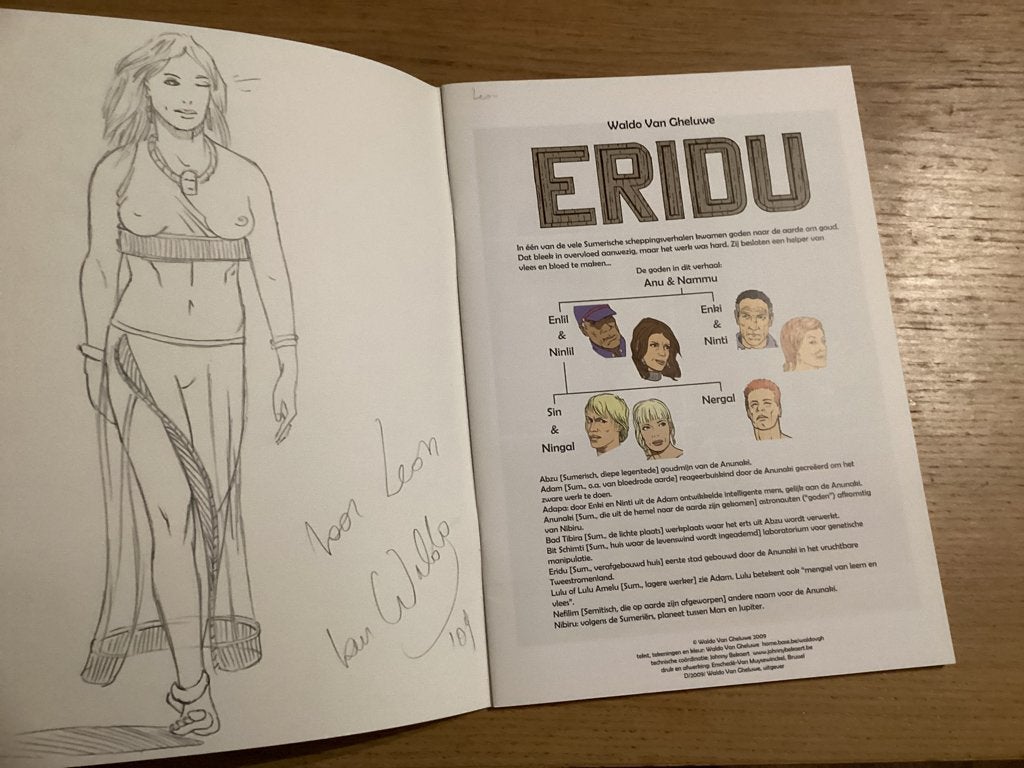 voor Leon
van Waldo
Leon
Waldo Van Gheluwe
ERIDU
In één van de vele Sumerische scheppingsverhalen kwamen goden naar de aarde om goud.
Dat bleek in overvloed aanwezig, maar het werk was hard. Zij besloten een helper van
vlees en bloed te maken...
De goden in dit verhaal:
Anu & Nammu
Enlil
&
Ninlil
Enki
&
Ninti
Sin
&
Ningal
Nergal
Abzu [Sumerisch, diepe legentede] goudmijn van de Anunaki.
Adam [Sum., o.a. van bloedrode aarde] reageerbuiskind door de Anunaki gecreëerd om het
zware werk te doen.
Adapa: door Enki en Ninti uit de Adam ontwikkelde intelligente mens, gelijk aan de Anunaki.
Anunaki [Sum., die uit de hemel naar de aarde zijn gekomen] astronauten ("goden") afkomstig
van Nibiru.
Bad Tibira [Sum., de lichte plaats] werkplaats waar het erts uit Abzu wordt verwerkt.
Bit Schimti [Sum., huis waar de levenswind wordt ingeademd] laboratorium voor genetische
manipulatie.
Eridu [Sum., verafgebouwd huis] eerste stad gebouwd door de Anunaki in het vruchtbare
Tweestromenland.
Lulu of Lulu Amelu [Sum., lagere werker] zie Adam. Lulu betekent ook "mengsel van leem en
vlees".
Nefilim [Semitisch, die op aarde zijn afgeworpen] andere naam voor de Anunaki.
Nibiru: volgens de Sumeriën, planeet tussen Mars en Jupiter.
© Waldo Van Gheluwe 2009
tekst, tekeningen en kleur: Waldo Van Gheluwe home.base.be/waldovgh
technische coördinatie: Johnny Bekaert www.johnnybekaert.be
druk en afwerking: Enschedé-Van Muysewinckel, Brussel
D/2009/ Waldo Van Gheluwe, uitgever